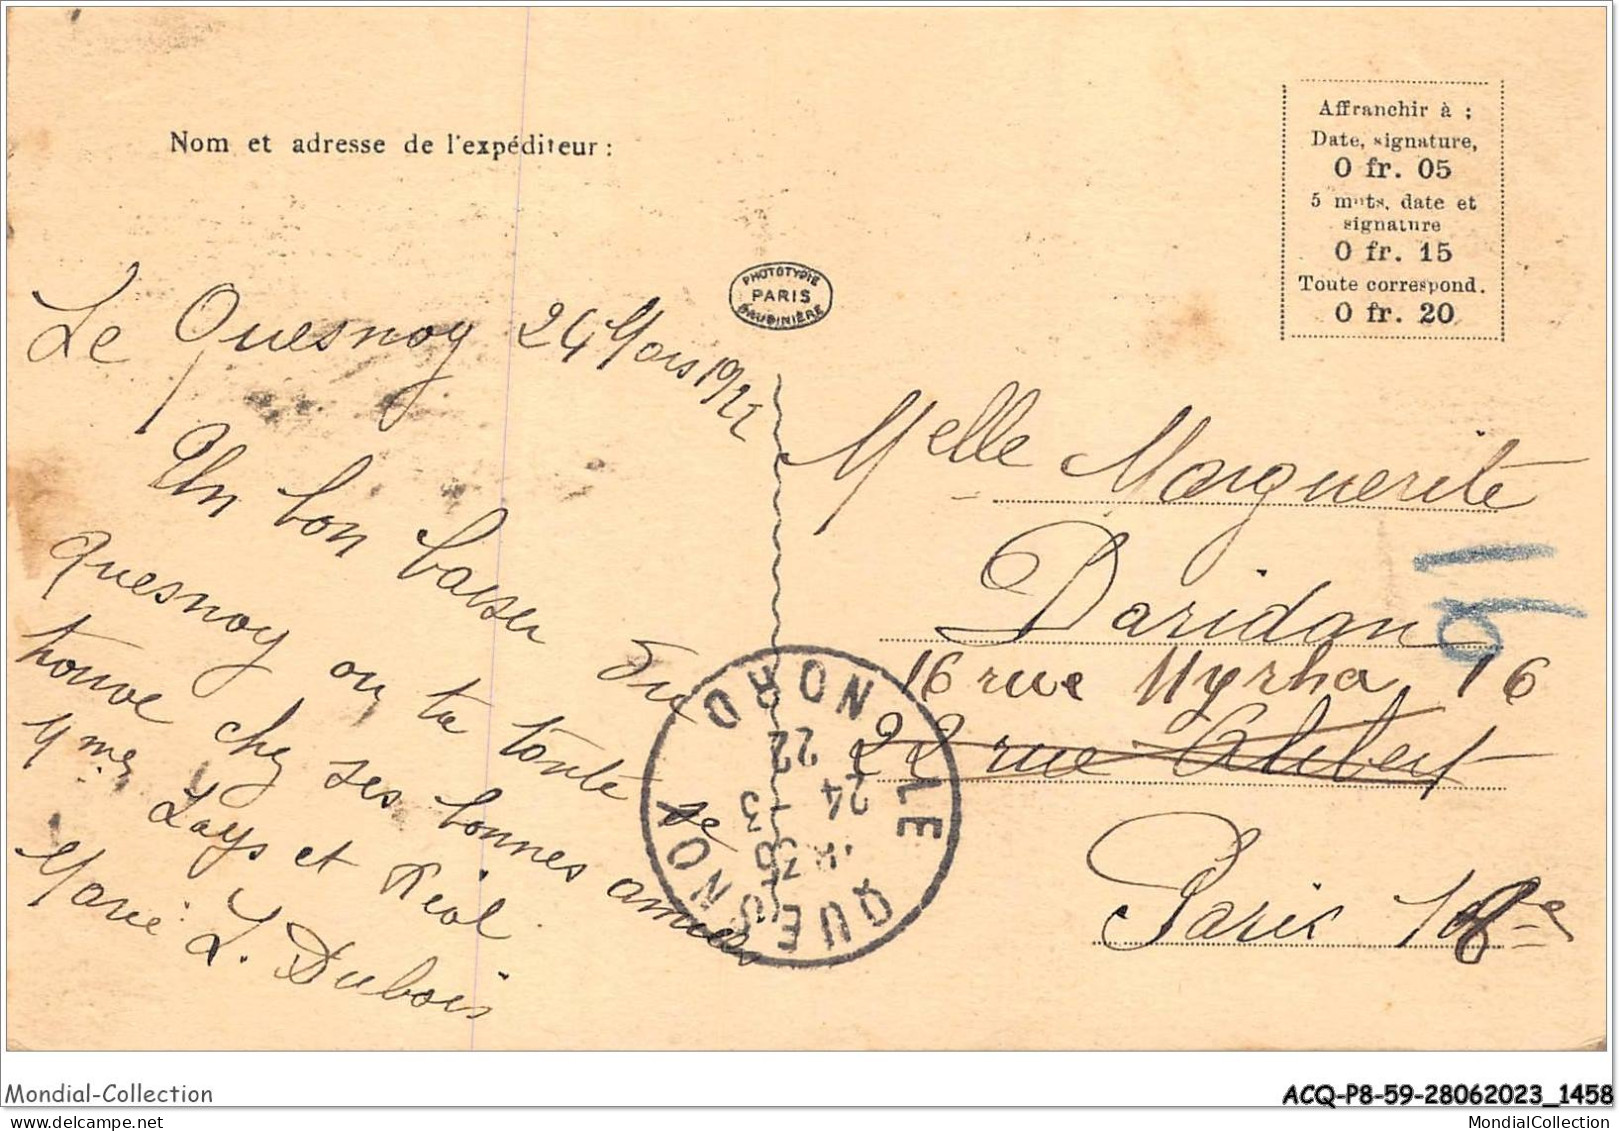 Nom et adresse de l'expéditeur :
Affranchir à :
Date, signature,
0 fr. 05
5 mots, date et
signature
0 fr. 15
Toute correspond.
0 fr. 20
PHOTOTYPIE
PARIS
BAUDINIÈRE
Le Quesnoy 24 Mars 1922
Un bon baiser du
Quesnoy ou ta toute
trouve chez ses bonnes amies
Mmes Lays et
Marie L. Dubois
LE QUESNOY NORD
24 - 3
22
Melle Marguerite
Daridan
16 rue Myrha 16
22 rue Alibert
Paris 18e
16
Mondial-Collection
ACQ-P8-59-28062023_1458
MondialCollection
www.delcampe.net